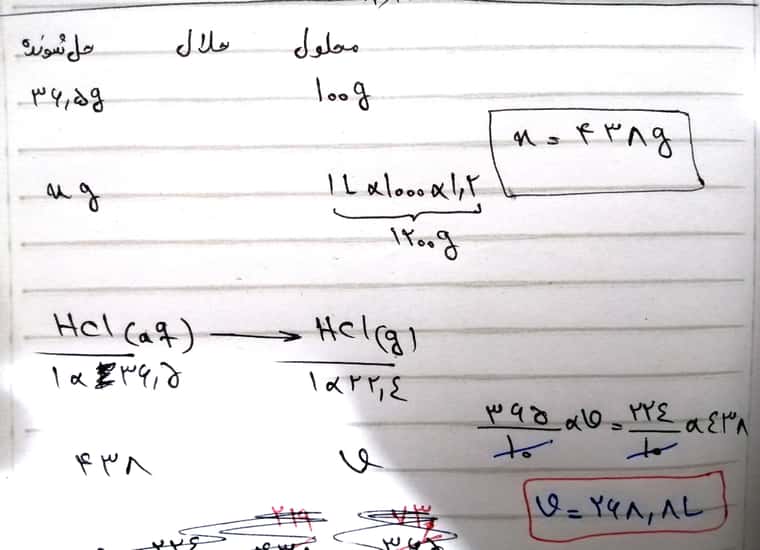 حل شونده حلال محلول
۳۶,۵g ۱۰۰g
x = ۴۳۸g
x g ۱L × ۱۰۰۰ × ۱,۲
۱۲۰۰g
HCl(aq) → HCl(g)
۱ × ۳۶,۵ ۱ × ۲۲,٤
۳۶۵/۱۰ × V = ۲۲٤/۱۰ × ٤۳۸
۴۳۸ V
V = ۲۶۸,۸L
۲۱۹ ۷۳